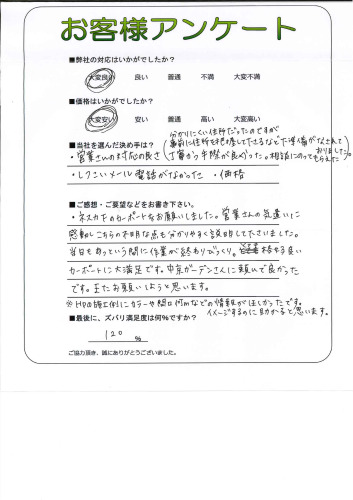 お客様アンケート
■弊社の対応はいかがでしたか？
大変良い 良い 普通 不満 大変不満
■価格はいかがでしたか？
大変安い 安い 普通 高い 大変高い
■当社を選んだ決め手は？
分かりにくい住所だったのですが
事前に住所を把握して下さるなど下準備がなされて
おりました。
・営業さんの対応の良さ
丁寧かつ手際が良かった。相談にのって
もらえた
・しつこいメール、電話がなかった ・価格
■ご感想・ご要望などをお書き下さい。
・ネスカFのカーポートをお願いしました。営業さんの気遣いに
感動しこちらの不明な点も分かりやすく説明して下さいました。
当日もあっという間に作業が終わりびっくり。格好良い
カーポートに大満足です。中京ガーデンさんに頼んで良かった
です。またお願いしようと思います。
※HPの施工例にカラーや間口何mなどの情報がほしかったです。
イメージするのに助かると思います。
■最後に、ズバリ満足度は何％ですか？
120 %
ご協力頂き、誠にありがとうございました。